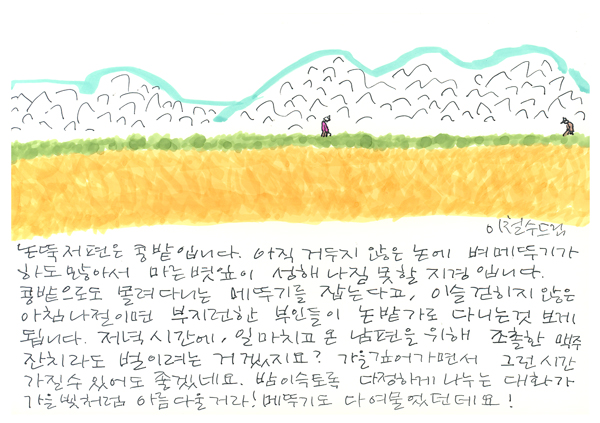 이철수드림
논뚝 저편은 콩밭입니다. 아직 거두지 않은 논에 벼메뚜기가
하도 많아서 마는 볏잎이 성해 나질 못할 지경입니다.
콩밭으로도 몰려다니는 메뚜기를 잡는다고, 이슬 걷히지 않은
아침나절이면 부지런한 부인들이 논밭가로 다니는것 보게
됩니다. 저녁 시간에, 일 마치고 온 남편을 위해 조촐한 맥주
잔치라도 벌이려는 거겠지요? 가을깊어가면서 그런 시간
가질 수 있어도 좋겠네요. 밤이슥토록 다정하게 나누는 대화가
가을빛처럼 아름다울거라! 메뚜기도 다 여물었던데요!